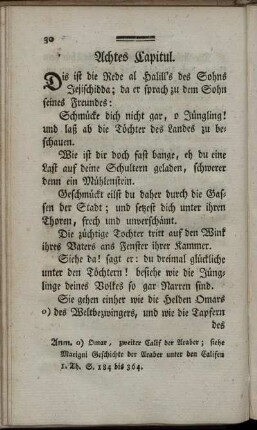 30
Achtes Capitul.
Dis ist die Rede al Halill's des Sohns
Jejischidda; da er sprach zu dem Sohn
seines Freundes:
Schmücke dich nicht gar, o Jüngling!
und laß ab die Töchter des Landes zu be-
schauen.
Wie ist dir doch fast bange, eh du eine
Last auf deine Schultern geladen, schwerer
denn ein Mühlenstein.
Geschmückt eilst du daher durch die Gas-
sen der Stadt; und setzest dich unter ihren
Thoren, frech und unverschämt.
Die züchtige Tochter tritt auf den Wink
ihrs Vaters ans Fenster ihrer Kammer.
Siehe da! sagt er: du dreimal glückliche
unter den Töchtern! besiehe wie die Jüng-
linge deines Volkes so gar Narren sind.
Sie gehen einher wie die Helden Omars
o) des Weltbezwingers, und wie die Tapfern
des
Anm. o) Omar, zweiter Calif der Araber; siehe
Marigni Geschichte der Araber unter den Califen
1. Th. S. 184 bis 364.